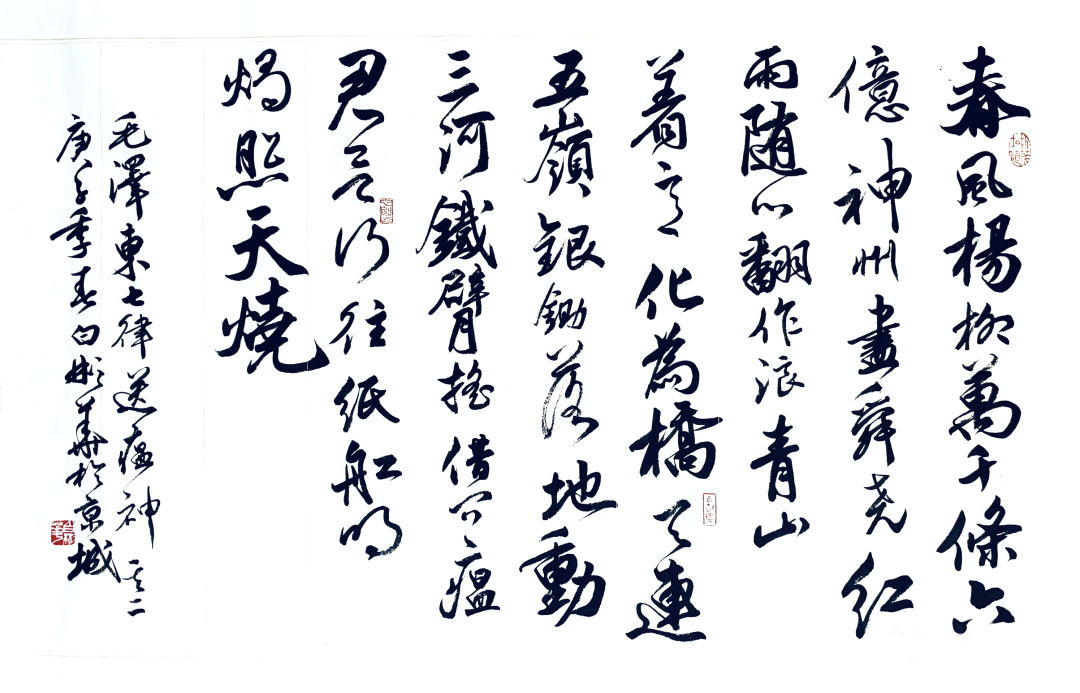 春風楊柳萬千條六
億神州盡舜尧红
雨随心翻作浪青山
着意化為橋天連
五嶺銀鋤落地動
三河鐵臂搖借问瘟
君欲何往紙船明
燭照天燒
毛澤東七律送瘟神其二
庚子季春白彬華於京城